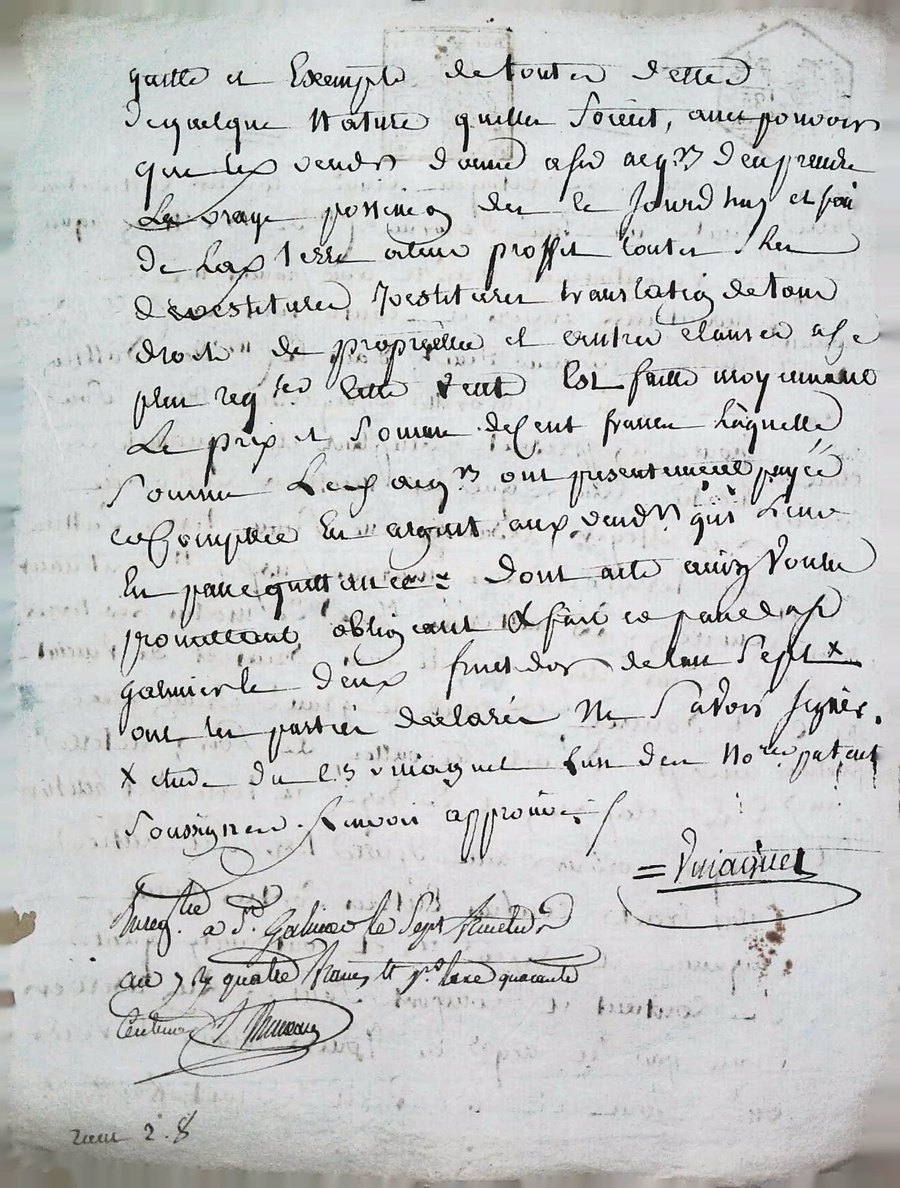 quitte et Exempte de toutes dettes
de quelque Nature quelles soient, avec pouvoir
que les vendrs donne aux acqrs d'en prendre
La vraye possession des le jourdhuy et
de La terre a leur proffit toutes les
devestitures jvestitures translation de tous
droits de proprietée et autres clauses a ce
plus reqses cette vente Est faitte moyennant
Le prix et somme de Cent francs Laquelle
somme Les acqrs ont presentement payée
et Comptée En argent aux vendrs qui Leur
En passe quittance = Dont acte ainsy Voulu
promettant, obligeant X fait et passé a st
galmier le deux fructidor de lan Sept x
ont les parties declarées Ne Savoir signer.
X etude du Cn vinaguet Lun des Nores patent
soussignes. Renvoi approuvé
= Vinaguet
Enregtré a St. Galmier le Sept fructidor
an 7 R quatre francs et pr. taxe quarante
Centimes
2. 8